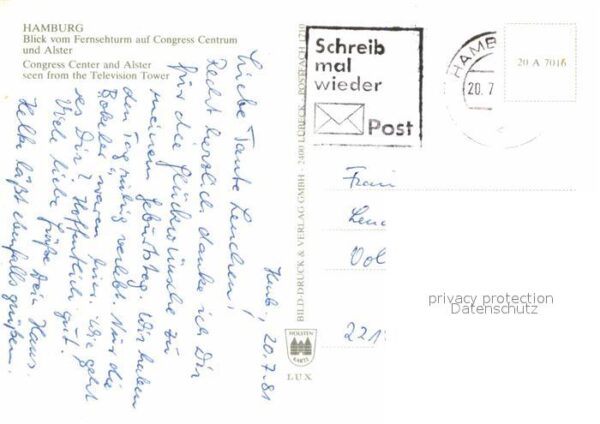 HAMBURG
Blick vom Fernsehturm auf Congress Centrum
und Alster
Congress Center and Alster
seen from the Television Tower
Hmb, 20.7.81
Liebe Tante Lenchen!
Recht herzlich danke ich Dir
für die Glückwünsche zu
meinem Geburtstag. Wir haben
den Tag ruhig verlebt. Nur die
waren hier. Wie geht
es Dir? Hoffentlich gut.
Viele liebe Grüße Dein Hans.
läßt ebenfalls grüßen.
BILD-DRUCK & VERLAG GMBH – 2400 LÜBECK – POSTFACH 1710
HOLSTEN
KARTE
LUX
Schreib
mal
wieder
Post
HAMB
20.7
20 A 7016
Frau
Len
Vol
221
privacy protection
Datenschutz